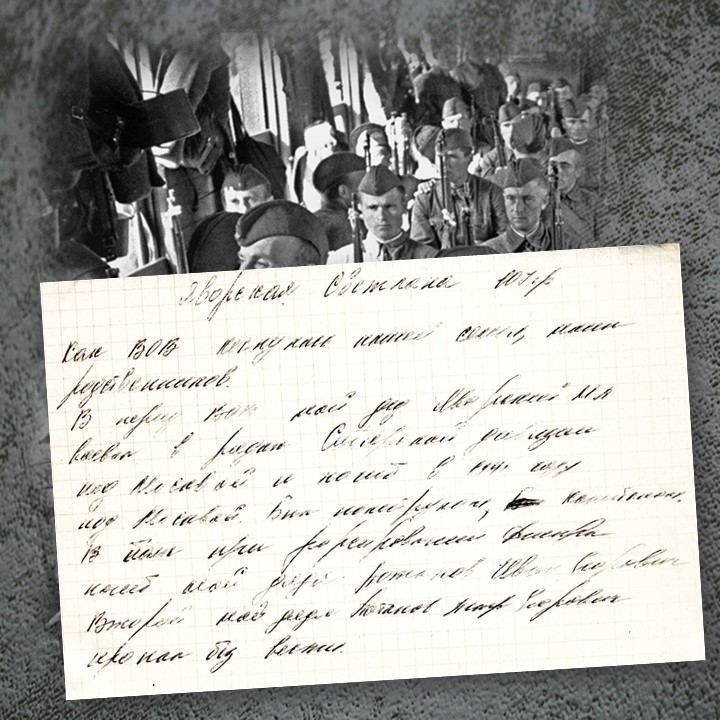 Яворская Светлана 10 Г
Как ВОВ коснулась нашей семьи, наших
родственников.
В период ВОВ мой дед Яворский
воевал в рядах Сибирской дивизии
под Москвой и погиб в году
под Москвой. Был политруком, капитаном.
В при форсировании Днепра
погиб мой дядя Потанов Иван Егорович
Второй мой дядя Потанов Петр Егорович
пропал без вести.